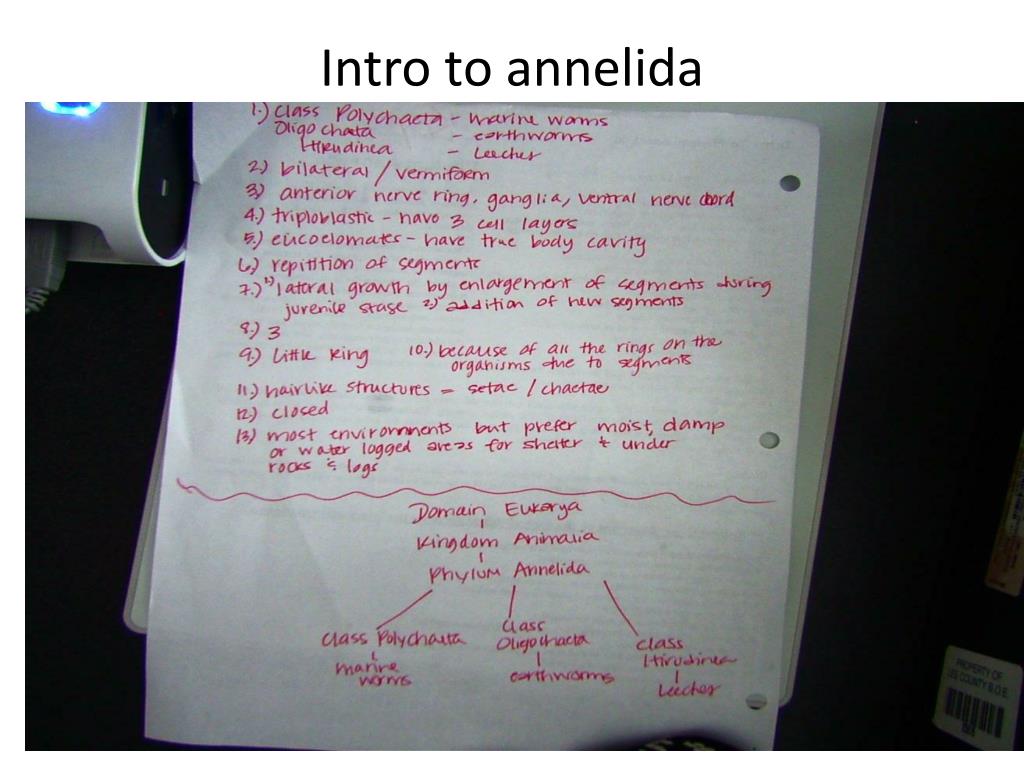 Intro to annelida
1.) Class Polychaeta - marine worms
Oligochata - earthworms
Hirudinea - Leeches
2.) bilateral / vermiform
3.) anterior nerve ring, ganglia, ventral nerve chord
4.) triploblastic - have 3 cell layers
5.) eucoelomates - have true body cavity
6.) repitition of segments
7.) 1.) lateral growth by enlargement of segments during
juvenile stage 2.) addition of new segments
8.) 3
9.) Little Ring 10.) because of all the rings on the
organisms due to segments
11.) hairlike structures = setae / chaetae
12.) closed
13.) most environments but prefer moist, damp
or water logged areas for shelter & under
rocks & logs
Domain Eukarya
Kingdom Animalia
Phylum Annelida
Class Polychaeta
marine
worms
Class
Oligochaeta
earthworms
Class
Hirudinea
Leeches
PROPERTY OF
LEE COUNTY B.O.E.